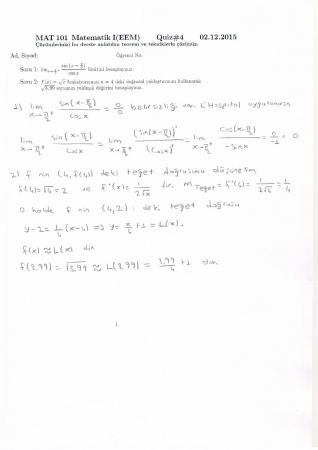 MAT 101 Matematik I(EEM) Quiz#4 02.12.2015
Çözümlerinizi bu derste anlatılan teorem ve tekniklerle çözünüz.
Ad, Soyad: Öğrenci No:
Soru 1: lim x→π/2⁺ sin(x−π/2)/cos x limitini hesaplayınız.
Soru 2: f(x) = √x fonksiyonunun x = 4 deki doğrusal yaklaştırımını kullanarak
√3,99 sayısının yaklaşık değerini hesaplayınız.
1) lim x→π/2⁺ sin(x−π/2)/Cos x = 0/0 belirsizliği var. L'Hospital uygulanırsa
lim x→π/2⁺ sin(x−π/2)/Cos x = lim x→π/2⁺ (sin(x−π/2))'/(Cos x)' = lim x→π/2⁺ Cos(x−π/2)/−sin x = 0
2) f nin (4, f(4)) deki teğet doğrusunu düşünelim
f(4)=√4=2 ve f'(x)= 1/2√x dir. m Teğet = f'(4) = 1/2√4 = 1/4
O halde f nin (4,2) deki teğet doğrusu
y−2 = 1/4 (x−4) ⇒ y = x/4 +1 = L(x).
f(x) ≈ L(x) din
f(3,99) = √3,99 ≈ L(3,99) = 3,99/4 +1 olur
1